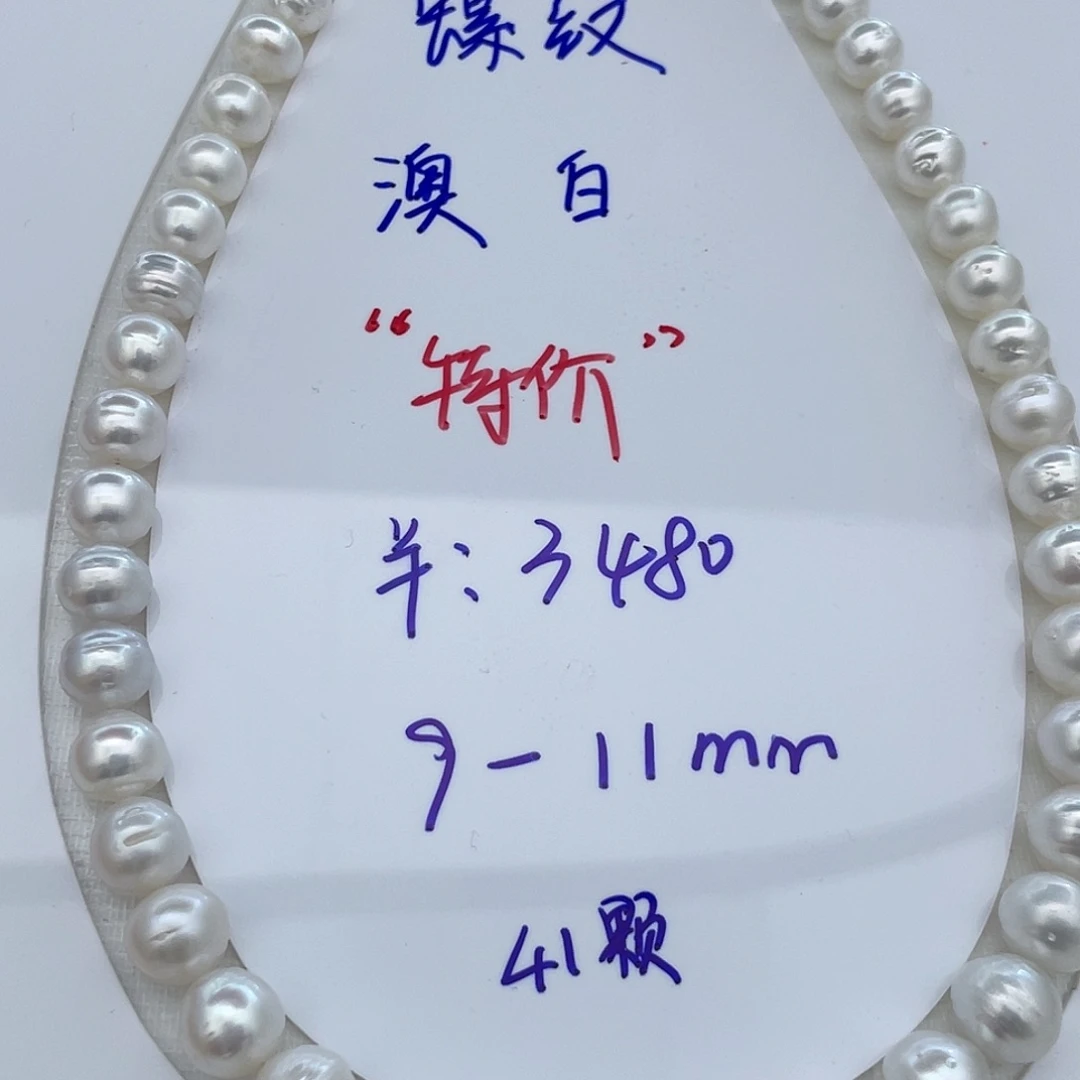 螺纹
澳白
“特价”
羊：3480
9-11mm
41颗